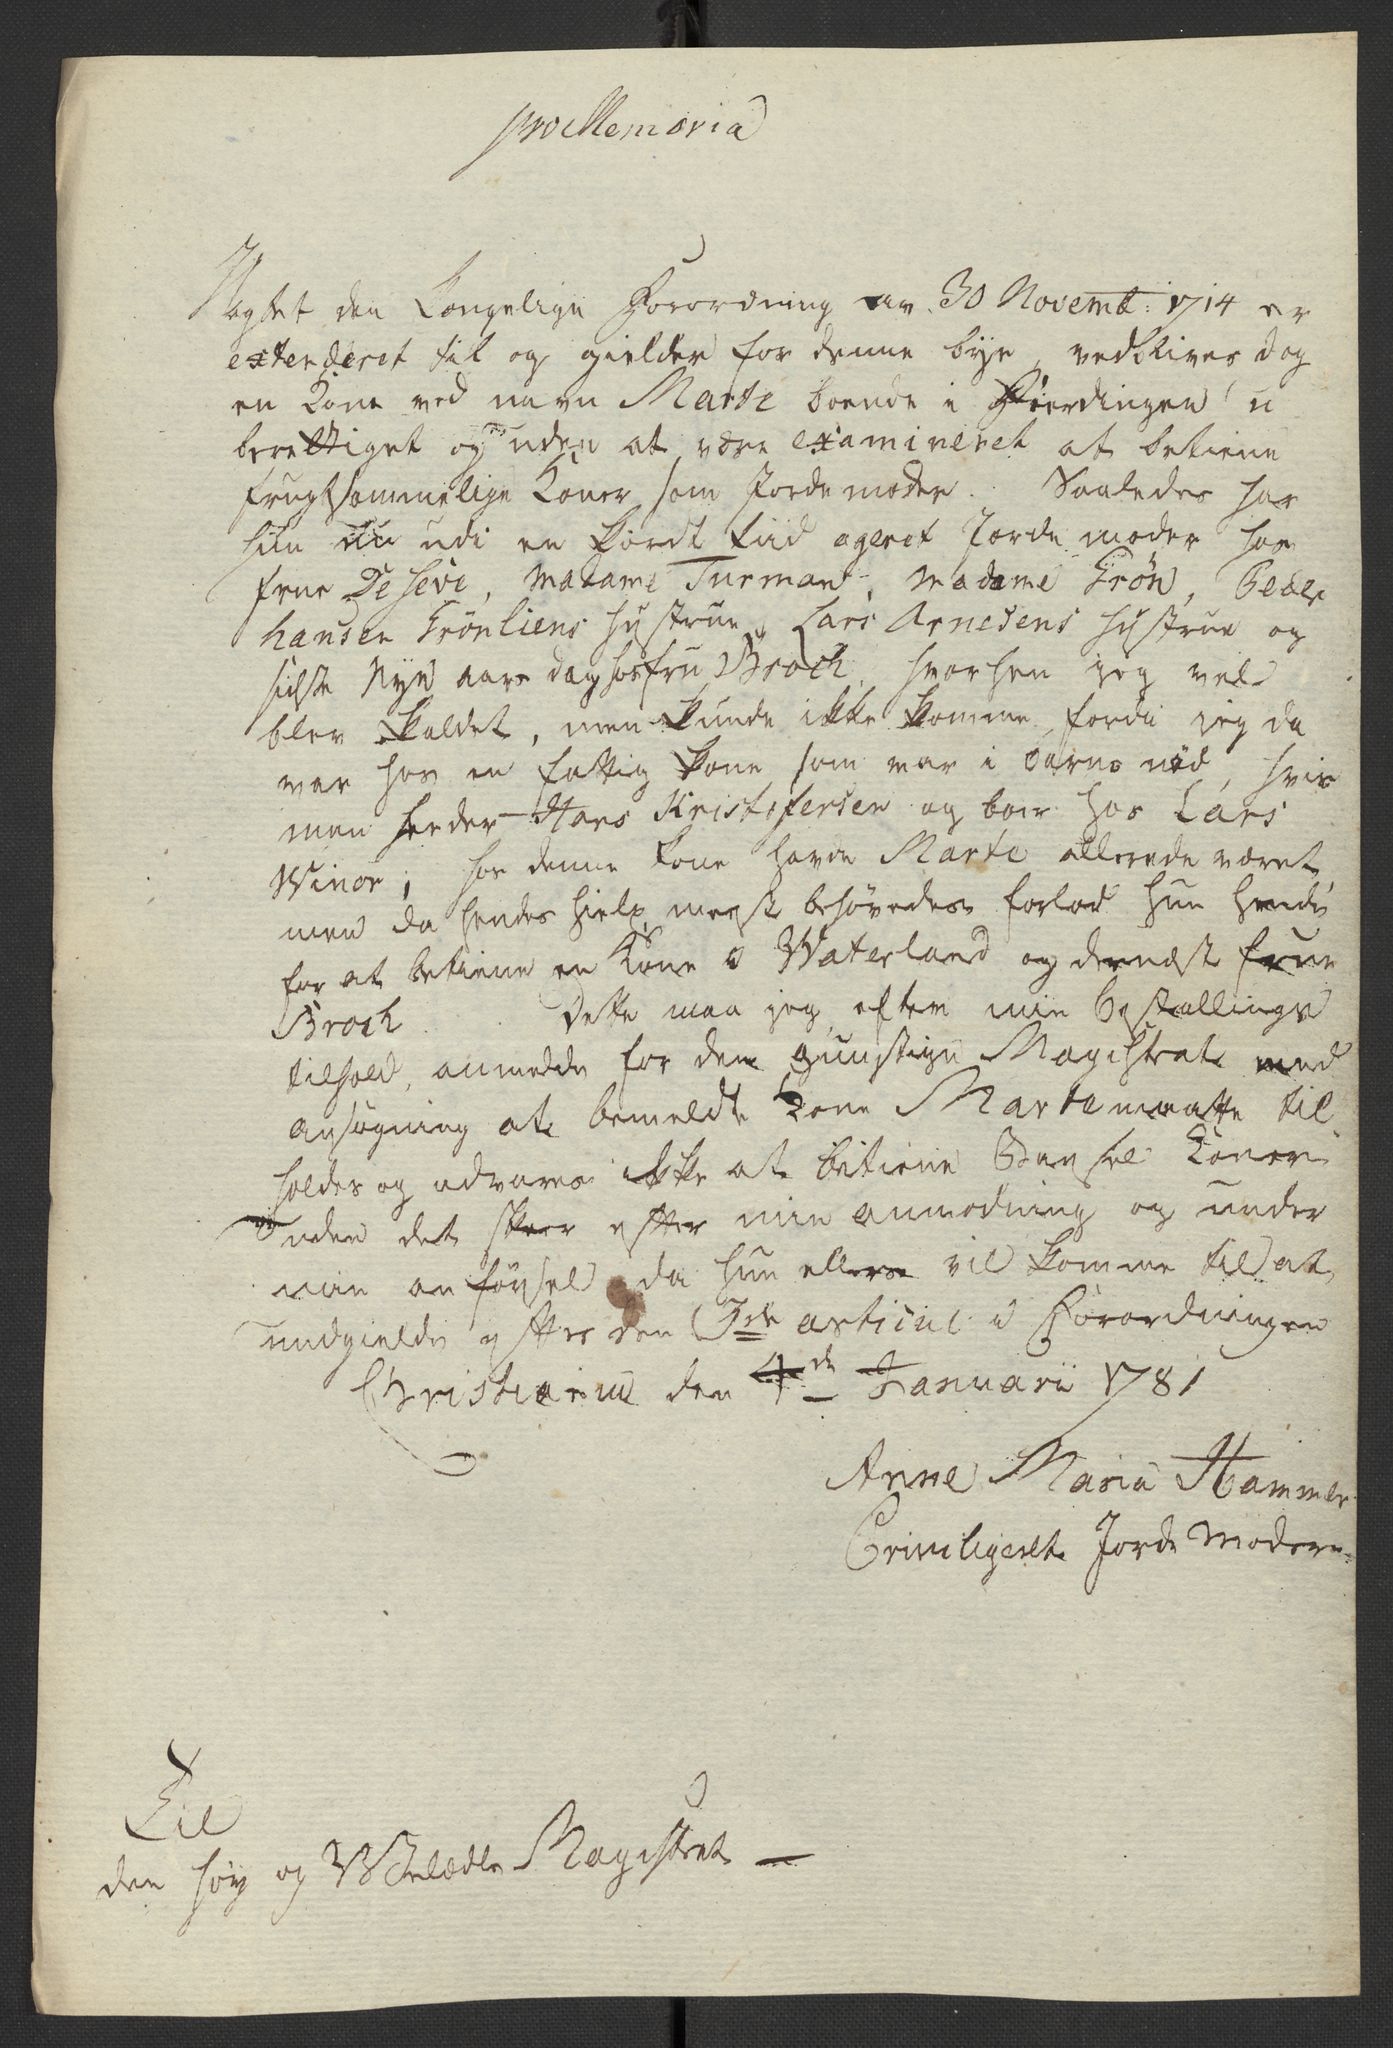 pro Memoria
Uagtet den Kongelige Forordning av 30 Novemb: 1714 er
extenderet til og gielder for denne bÿe, vedbliver dog
en Kone ved navn Marte boende i Fierdingen u
berettiget og uden at være examineret at betiene
frugtsommelige Koner som Jordemoder. Saaledes har
hun nu udi en kordt tiid ageret Jorde moder hos
frue De Seve, Madame Turman, Madame Grön, Peder
hansen Grönliens hustrue, Lars Arnesens hustrue og
sidste Nye aars dag hos fru Broch, hvorhen jeg vel
blev kaldet, men kunde ikke komme, fordi jeg da
var hos en fattig kone som var i barns nød, hvis
man heeder Hans Kristofersen og boer hos Lars
Winor, hos denne kone havde Marte allerede været
men da hendes hielp meest behövedes forlod hun hende
for at betiene en Kone i Waterland og dernæst frue
Broch. Dette maa jeg efter min bestallings
tilhold, anmelde for den gunstige Magistrat med
ansögning at bemeldte Kone Marte maatte til
holdes og advares ikke at betiene Barsel Koner
uden det skeer efter min anmodning og under
min anförsel da hun ellers vil komme til at
undgielde efter den 3de articul i Forordningen
Christiania den 4de Januarii 1781
Anne Maria Hammer
Priviligeret Jorde Moder
Til
den höy og Velædle Magistrat